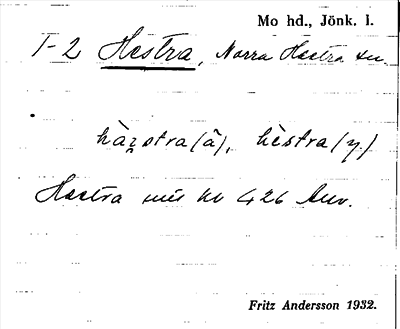 Mo hd., Jönk. l.
1-2 Hestra, Norra Hestra sn.
hàrstra (ä), hèstra (y.)
Hestra nr 426 Anv.
Fritz Andersson 1932.